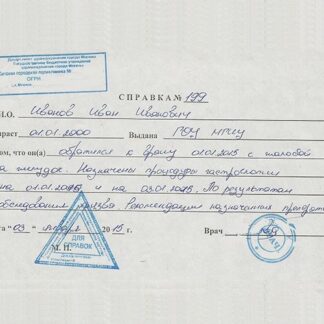 Департамент здравоохранения города Москвы
Государственное бюджетное учреждение
здравоохранения города Москвы
городская поликлиника №
ОГРН
г. Москва
СПРАВКА № 199
И.О. Иванов Иван Иванович
зраст 01.01.2000 Выдана
ом, что он(а) обратился к врачу 01.01.2015 с жалобой
на желудок. Назначены процедуры гастроскопии
на 01.01.2015 и на 03.01.2015. По результатам
обследования Рекомендации
та "03" января 2015 г. Врач
М. П.
ДЛЯ
СПРАВОК
ВРАЧ